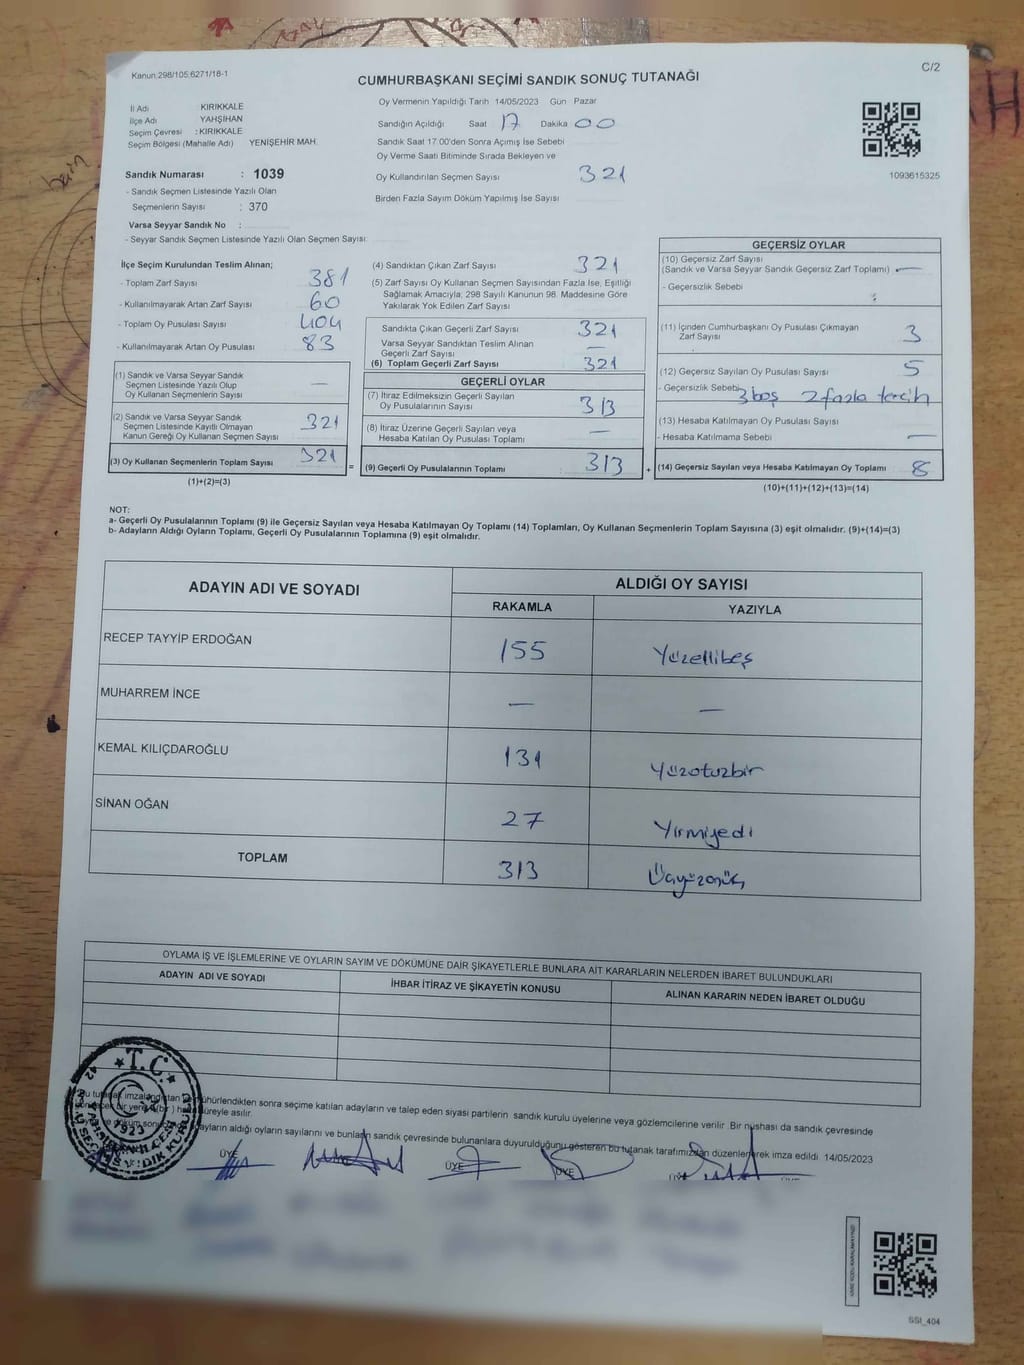 Kanun:298/105;6271/18-1
C/2
CUMHURBAŞKANI SEÇİMİ SANDIK SONUÇ TUTANAĞI
İl Adı KIRIKKALE
İlçe Adı YAHŞİHAN
Seçim Çevresi : KIRIKKALE
Seçim Bölgesi (Mahalle Adı) YENİŞEHİR MAH.
Sandık Numarası : 1039
- Sandık Seçmen Listesinde Yazılı Olan
Seçmenlerin Sayısı : 370
Varsa Seyyar Sandık No :
- Seyyar Sandık Seçmen Listesinde Yazılı Olan Seçmen Sayısı:
Oy Vermenin Yapıldığı Tarih 14/05/2023 Gün Pazar
Sandığın Açıldığı Saat 17 Dakika 00
Sandık Saat 17.00'den Sonra Açımış İse Sebebi
Oy Verme Saati Bitiminde Sırada Bekleyen ve
Oy Kullandırılan Seçmen Sayısı 321
Birden Fazla Sayım Döküm Yapılmış İse Sayısı
1093615325
İlçe Seçim Kurulundan Teslim Alınan;
- Toplam Zarf Sayısı 381
- Kullanılmayarak Artan Zarf Sayısı 60
- Toplam Oy Pusulası Sayısı 404
- Kullanılmayarak Artan Oy Pusulası 83
(1) Sandık ve Varsa Seyyar Sandık
Seçmen Listesinde Yazılı Olup
Oy Kullanan Seçmenlerin Sayısı —
(2) Sandık ve Varsa Seyyar Sandık
Seçmen Listesinde Kayıtlı Olmayan
Kanun Gereği Oy Kullanan Seçmen Sayısı 321
(3) Oy Kullanan Seçmenlerin Toplam Sayısı 321
(1)+(2)=(3)
(4) Sandıktan Çıkan Zarf Sayısı 321
(5) Zarf Sayısı Oy Kullanan Seçmen Sayısından Fazla İse, Eşitliği
Sağlamak Amacıyla, 298 Sayılı Kanunun 98. Maddesine Göre
Yakılarak Yok Edilen Zarf Sayısı
Sandıkta Çıkan Geçerli Zarf Sayısı 321
Varsa Seyyar Sandıktan Teslim Alınan
Geçerli Zarf Sayısı —
(6) Toplam Geçerli Zarf Sayısı 321
GEÇERLİ OYLAR
(7) İtiraz Edilmeksizin Geçerli Sayılan
Oy Pusulalarının Sayısı 313
(8) İtiraz Üzerine Geçerli Sayılan veya
Hesaba Katılan Oy Pusulası Toplamı —
= (9) Geçerli Oy Pusulalarının Toplamı 313
GEÇERSİZ OYLAR
(10) Geçersiz Zarf Sayısı
(Sandık ve Varsa Seyyar Sandık Geçersiz Zarf Toplamı) —
- Geçersizlik Sebebi
(11) İçinden Cumhurbaşkanı Oy Pusulası Çıkmayan
Zarf Sayısı 3
(12) Geçersiz Sayılan Oy Pusulası Sayısı 5
- Geçersizlik Sebebi 3 boş 2 fazla tercih
(13) Hesaba Katılmayan Oy Pusulası Sayısı
- Hesaba Katılmama Sebebi —
+ (14) Geçersiz Sayılan veya Hesaba Katılmayan Oy Toplamı 8
(10)+(11)+(12)+(13)=(14)
NOT:
a- Geçerli Oy Pusulalarının Toplamı (9) ile Geçersiz Sayılan veya Hesaba Katılmayan Oy Toplamı (14) Toplamları, Oy Kullanan Seçmenlerin Toplam Sayısına (3) eşit olmalıdır. (9)+(14)=(3)
b- Adayların Aldığı Oyların Toplamı, Geçerli Oy Pusulalarının Toplamına (9) eşit olmalıdır.
ADAYIN ADI VE SOYADI ALDIĞI OY SAYISI
RAKAMLA YAZIYLA
RECEP TAYYİP ERDOĞAN 155 Yüzellibeş
MUHARREM İNCE — —
KEMAL KILIÇDAROĞLU 131 Yüzotuzbir
SİNAN OĞAN 27 Yirmiyedi
TOPLAM 313 Üçyüzonüç
OYLAMA İŞ VE İŞLEMLERİNE VE OYLARIN SAYIM VE DÖKÜMÜNE DAİR ŞİKAYETLERLE BUNLARA AİT KARARLARIN NELERDEN İBARET BULUNDUKLARI
ADAYIN ADI VE SOYADI İHBAR İTİRAZ VE ŞİKAYETİN KONUSU ALINAN KARARIN NEDEN İBARET OLDUĞU
sonra seçime katılan adayların ve talep eden siyasi partilerin sandık kurulu üyelerine veya gözlemcilerine verilir. Bir nüshası da sandık çevresinde
süreyle asılır.
aldığı oyların sayılarını ve bunların sandık çevresinde bulunanlara duyurulduğunu gösteren bu tutanak tarafımızdan düzenlenerek imza edildi. 14/05/2023
T.C.
1923
ÜYE ÜYE ÜYE
SSI_404